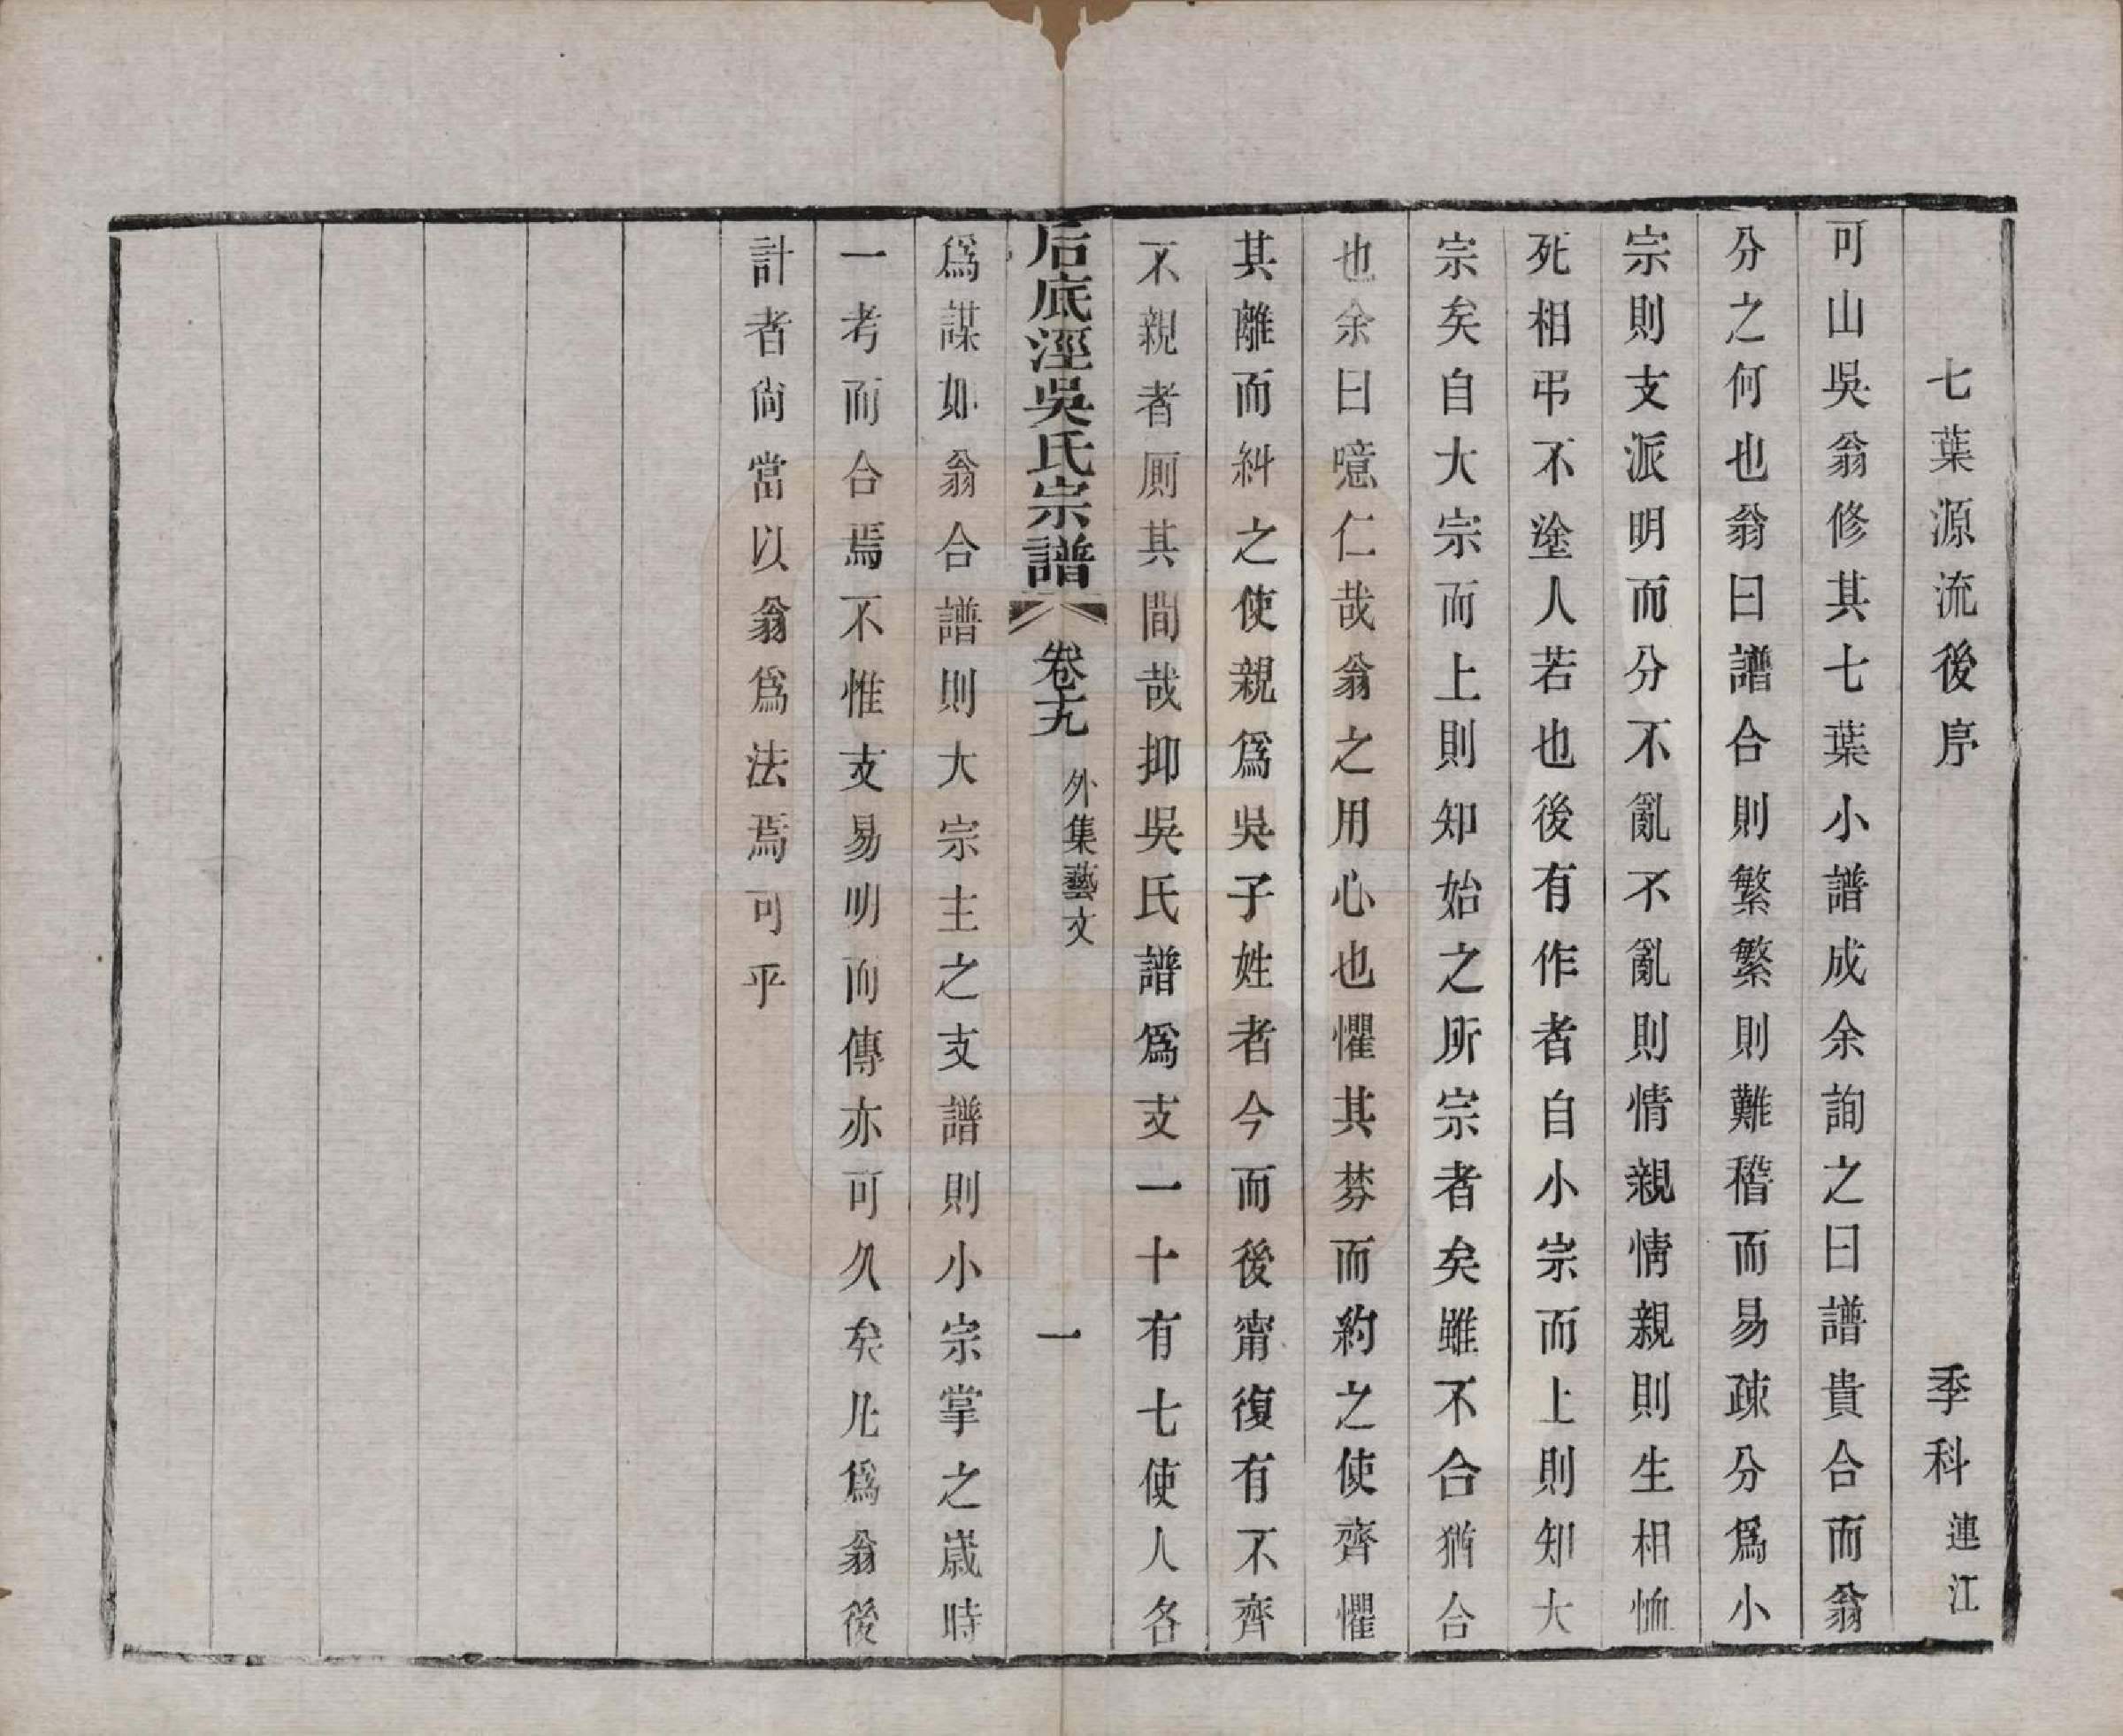 七葉源流後序 季科連江
可山吳翁修其七葉小譜成余詢之曰譜貴合而翁
分之何也翁曰譜合則繁繁則難稽而易疎分爲小
宗則支派明而分不亂不亂則情親情親則生相恤
死相弔不塗人若也後有作者自小宗而上則知大
宗矣自大宗而上則知始之所宗者矣雖不合猶合
也余曰噫仁哉翁之用心也懼其棼而約之使齊懼
其離而糾之使親爲吳子姓者今而後甯復有不齊
不親者厠其間哉抑吳氏譜爲支一十有七使人各
后底涇吳氏宗譜 卷十九 外集藝文 一
爲謀如翁合譜則大宗主之支譜則小宗掌之歲時
一考而合焉不惟支易明而傳亦可久矣凡爲翁後
計者尙當以翁爲法焉可乎